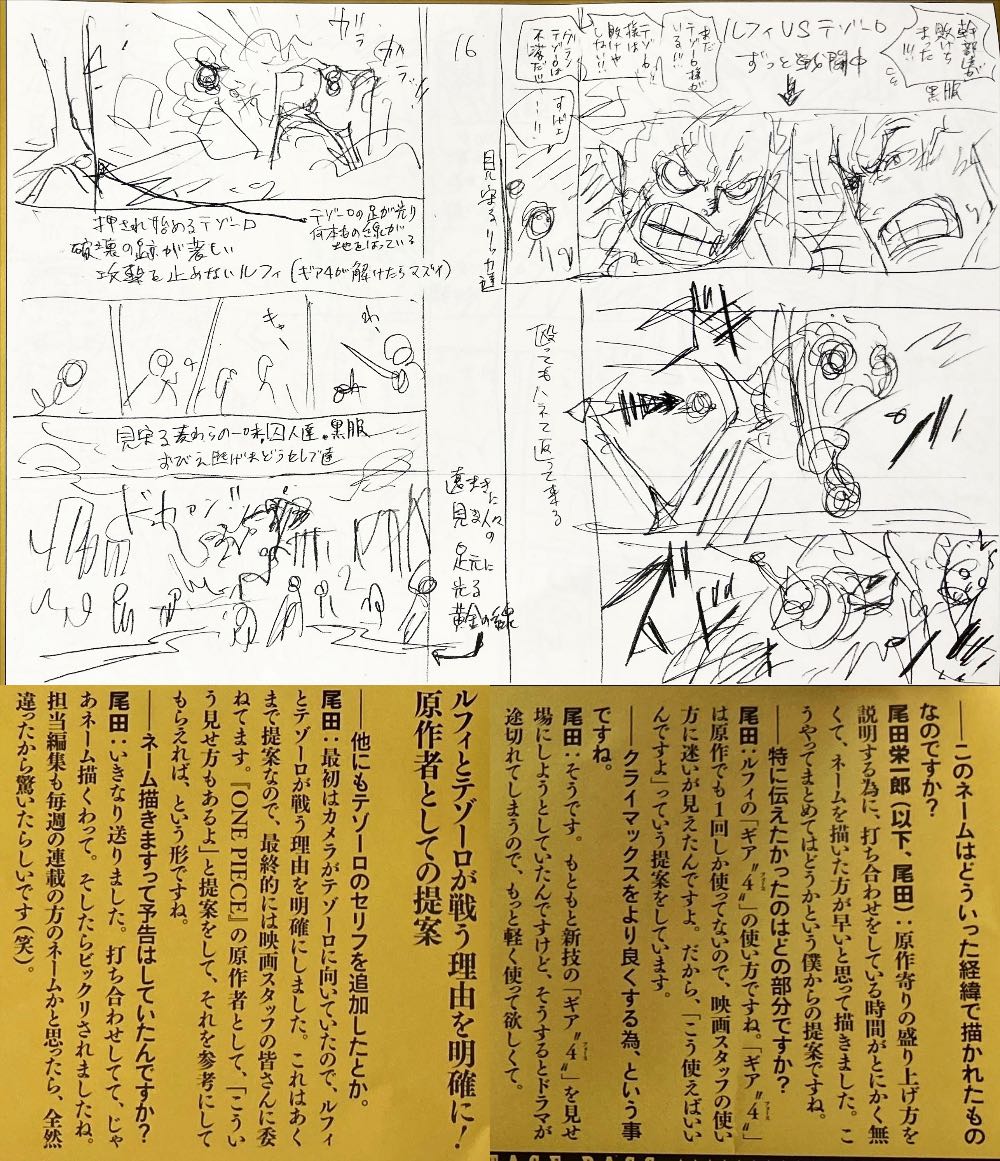 ルフィVSテゾーロ
ずっと戦闘中
幹部達が
敗けち
まった
!!!
黒服
まだ
テゾーロ様が
いる!!!
テゾーロ
様は
敗けや
しない!!
グラン
テゾーロは
不落だ!!!
すげェ
ーー!!
見守るリッカ達
殴ってもハネて返って来る
16
ガラ
ガラッ!!
押され始めるテゾーロ
破壊の跡が著しい
攻撃を止めないルフィ(ギア4が解けたらマズイ)
テゾーロの足が光り
何本もの線が
地をはっている
きゃ
わ、
見守る麦わらの一味、囚人達、黒服
おびえ逃げまどうセレブ達
ドカァン!!
遠まきに
見る人々の
足元に
光る
黄金の線
──このネームはどういった経緯で描かれたもの
なのですか?
尾田栄一郎(以下、尾田):原作寄りの盛り上げ方を
説明する為に、打ち合わせをしている時間がとにかく無
くて、ネームを描いた方が早いと思って描きました。こ
うやってまとめてはどうかという僕からの提案ですね。
──特に伝えたかったのはどの部分ですか?
尾田:ルフィの「ギア"4"」の使い方ですね。「ギア"4"」
は原作でも1回しか使ってないので、映画スタッフの使い
方に迷いが見えたんですよ。だから、「こう使えばいい
んですよ」っていう提案をしています。
──クライマックスをより良くする為、という事
ですね。
尾田:そうです。もともと新技の「ギア"4"」を見せ
場にしようとしていたんですけど、そうするとドラマが
途切れてしまうので、もっと軽く使って欲しくて。
ルフィとテゾーロが戦う理由を明確に!
原作者としての提案
──他にもテゾーロのセリフを追加したとか。
尾田:最初はカメラがテゾーロに向いていたので、ルフィ
とテゾーロが戦う理由を明確にしました。これはあく
まで提案なので、最終的には映画スタッフの皆さんに委
ねてます。『ONE PIECE』の原作者として、「こうい
う見せ方もあるよ」と提案をして、それを参考にして
もらえれば、という形ですね。
──ネーム描きますって予告はしていたんですか?
尾田:いきなり送りました。打ち合わせしてて、じゃ
あネーム描くわって。そしたらビックリされましたね。
担当編集も毎週の連載の方のネームかと思ったら、全然
違ったから驚いたらしいです(笑)。